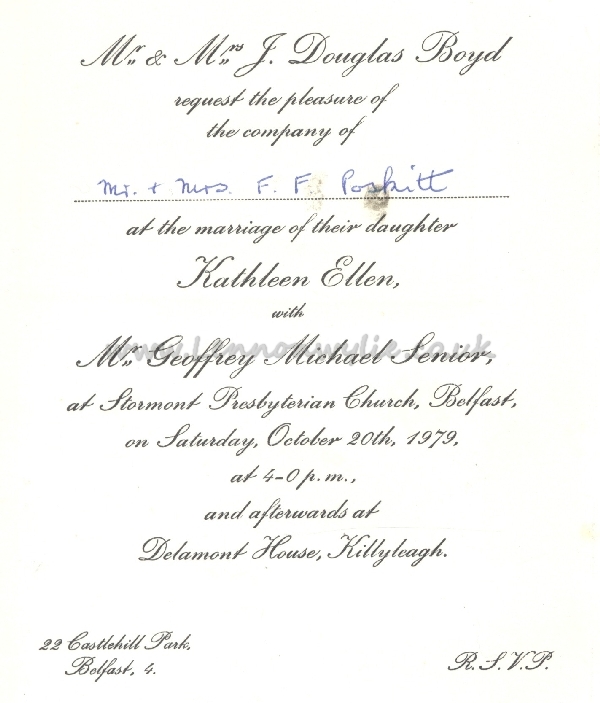 Mr. & Mrs. J. Douglas Boyd
request the pleasure of
the company of
Mr. + Mrs. F. F. Poskitt
at the marriage of their daughter
Kathleen Ellen,
with
www.lennonwylie.co.uk
Mr. Geoffrey Michael Senior,
at Stormont Presbyterian Church, Belfast,
on Saturday, October 20th, 1979,
at 4-0 p.m.,
and afterwards at
Delamont House, Killyleagh.
22 Castlehill Park,
Belfast, 4.
R.S.V.P.